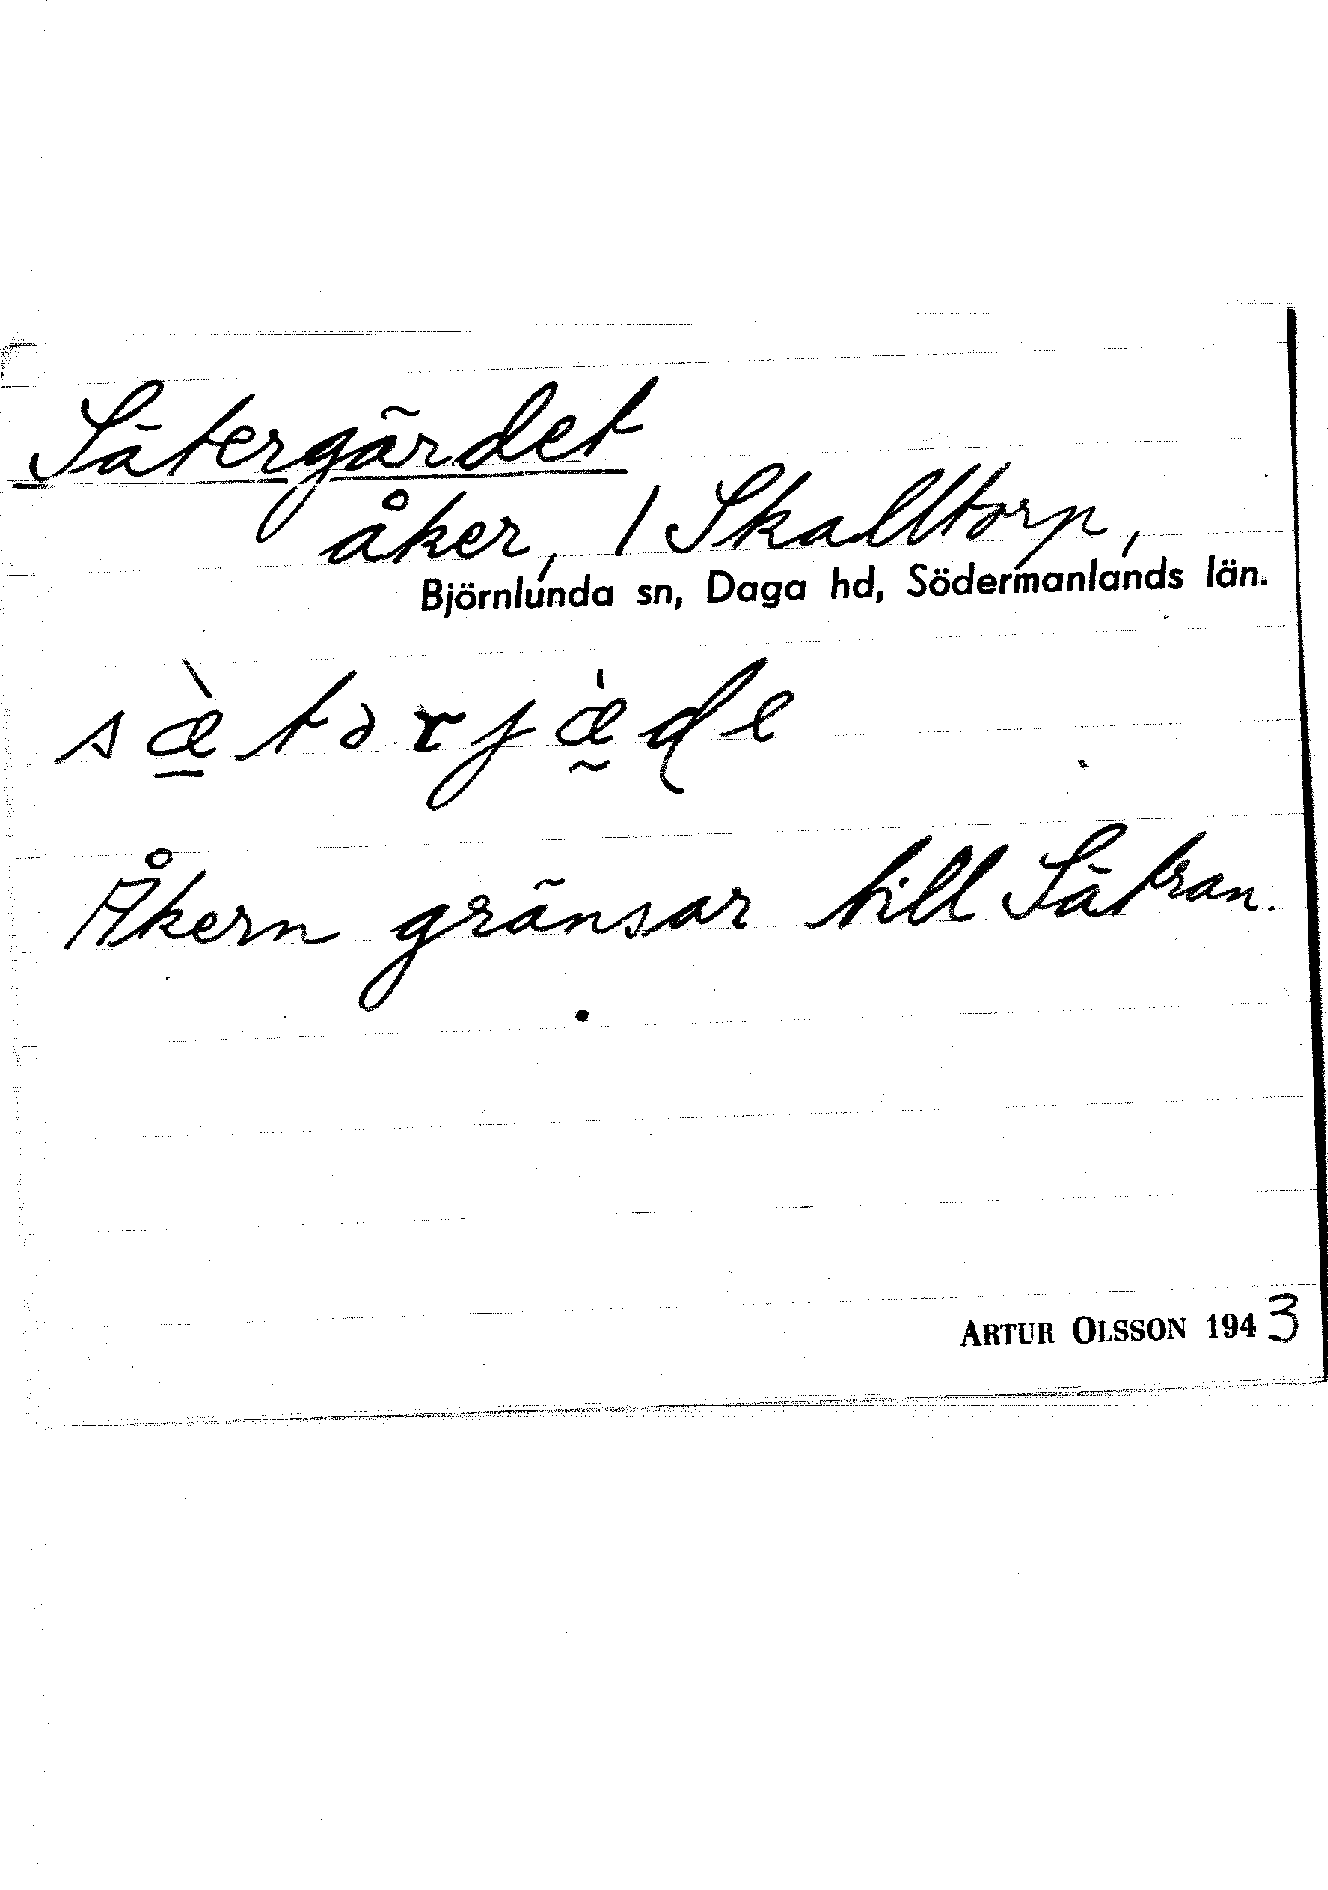 Sätergärdet
åker, 1 Skalltorp,
Björnlunda sn, Daga hd, Södermanlands län.
sæ̱̀tərjæ̰̍ḍe
Åkern gränsar till Sätran.
ARTUR OLSSON 1943